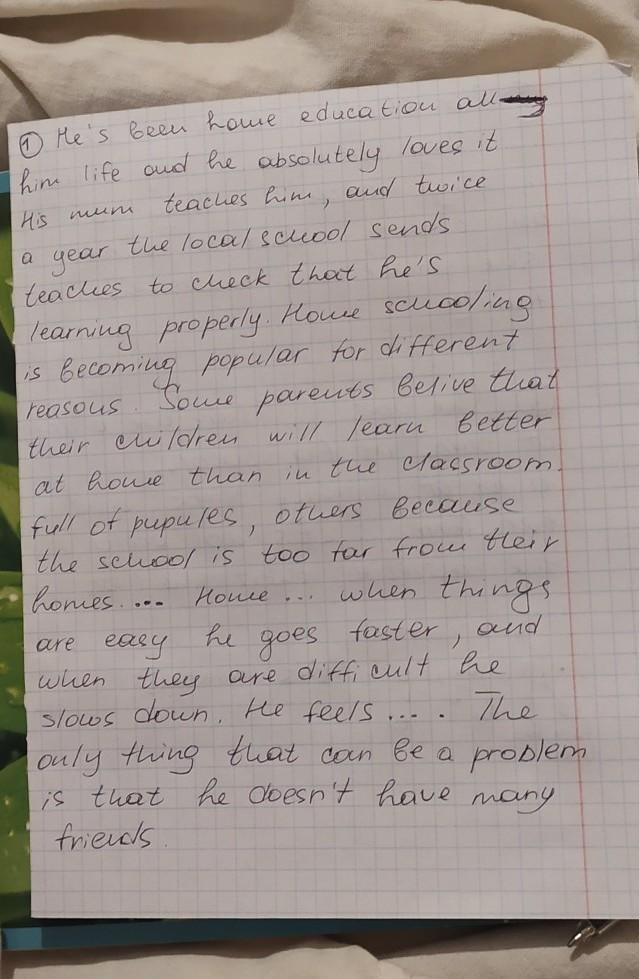 ① He's been home education all
him life and he absolutely loves it
His mum teaches him, and twice
a year the local school sends
teaches to check that he's
learning properly. Home schooling
is becoming popular for different
reasons. Some parents belive that
their children will learn better
at home than in the classroom.
full of pupules, others because
the school is too far from their
homes. ... Home ... when things
are easy he goes faster, and
when they are difficult he
slows down. He feels .... The
only thing that can be a problem
is that he doesn't have many
friends.